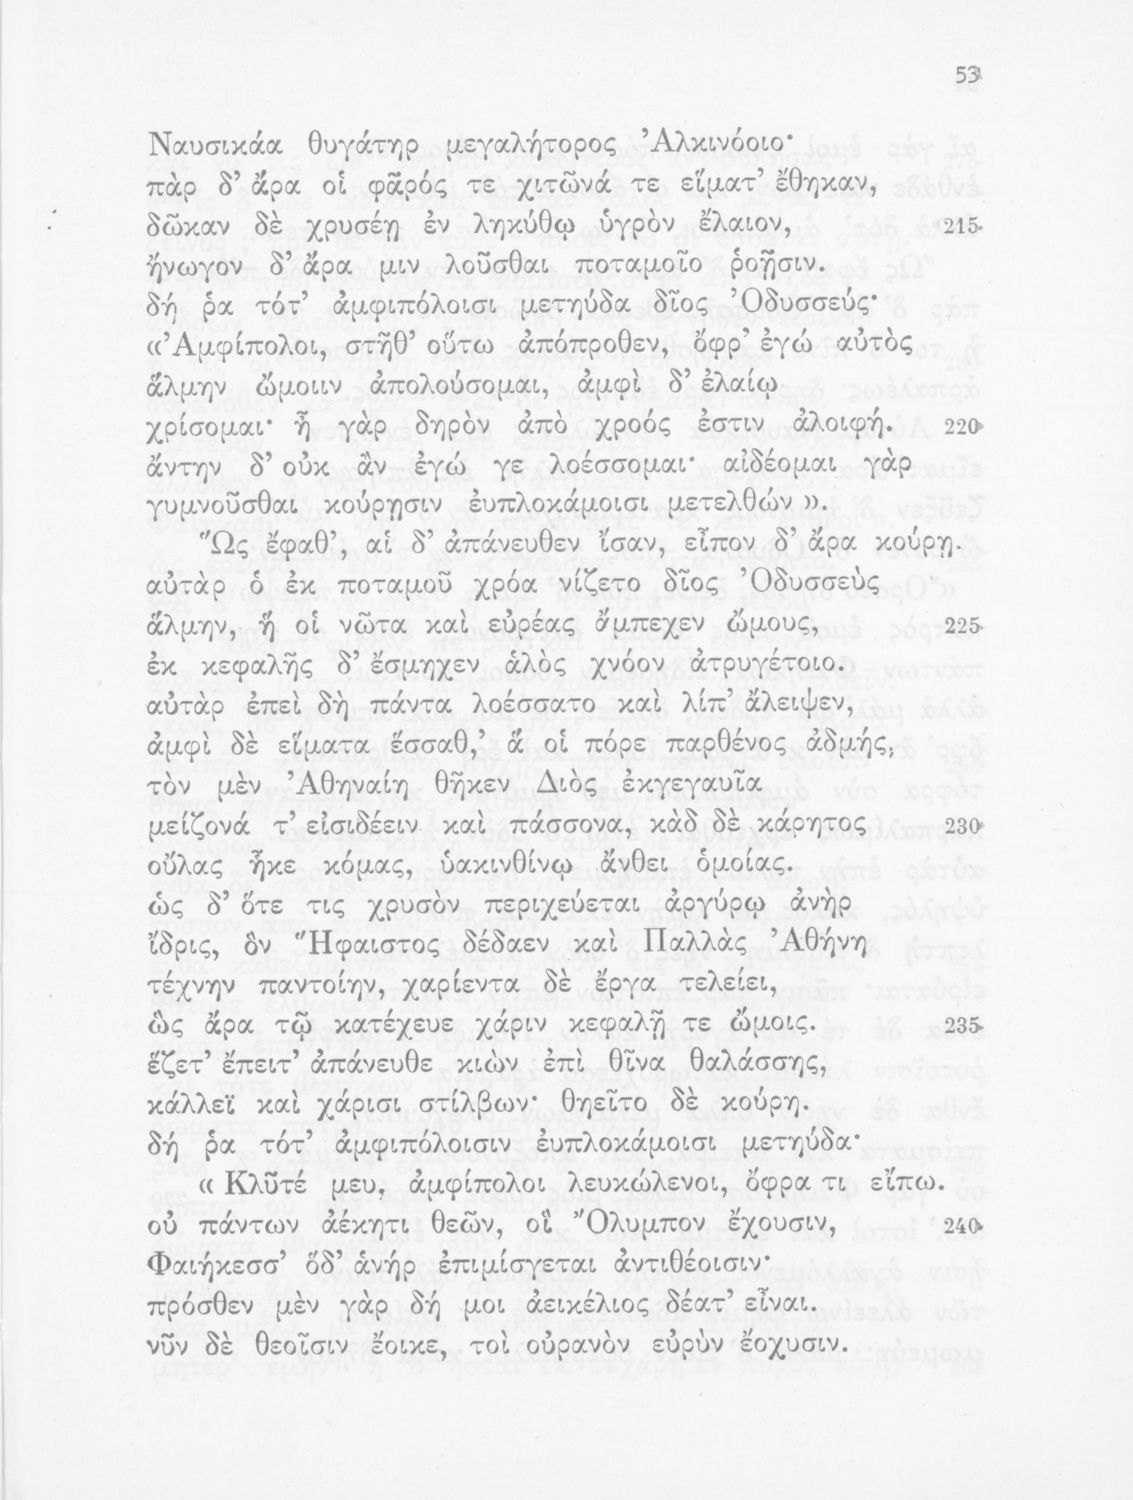 53
Ναυσικάα θυγάτηρ μεγαλήτορος Ἀλκινόοιο·
πὰρ δ’ ἄρα οἱ φᾶρός τε χιτῶνά τε εἵματ’ ἔθηκαν,
δῶκαν δὲ χρυσέῃ ἐν ληκύθῳ ὑγρὸν ἔλαιον, 215
ἤνωγον δ’ ἄρα μιν λοῦσθαι ποταμοῖο ῥοῇσιν.
δή ῥα τότ’ ἀμφιπόλοισι μετηύδα δῖος Ὀδυσσεύς·
«Ἀμφίπολοι, στῆθ’ οὕτω ἀπόπροθεν, ὄφρ’ ἐγώ αὐτὸς
ἅλμην ὤμοιιν ἀπολούσομαι, ἀμφὶ δ’ ἐλαίῳ
χρίσομαι· ἦ γὰρ δηρὸν ἀπὸ χροός ἐστιν ἀλοιφή. 220
ἄντην δ’ οὐκ ἂν ἐγώ γε λοέσσομαι· αἰδέομαι γὰρ
γυμνοῦσθαι κούρῃσιν ἐυπλοκάμοισι μετελθών».
Ὣς ἔφαθ’, αἱ δ’ ἀπάνευθεν ἴσαν, εἶπον δ’ ἄρα κούρῃ.
αὐτὰρ ὁ ἐκ ποταμοῦ χρόα νίζετο δῖος Ὀδυσσεὺς
ἅλμην, ἥ οἱ νῶτα καὶ εὐρέας ἄμπεχεν ὤμους, 225
ἐκ κεφαλῆς δ’ ἔσμηχεν ἁλὸς χνόον ἀτρυγέτοιο.
αὐτὰρ ἐπεὶ δὴ πάντα λοέσσατο καὶ λίπ’ ἄλειψεν,
ἀμφὶ δὲ εἵματα ἕσσαθ,’ ἅ οἱ πόρε παρθένος ἀδμής,
τὸν μὲν Ἀθηναίη θῆκεν Διὸς ἐκγεγαυῖα
μείζονά τ’ εἰσιδέειν καὶ πάσσονα, κὰδ δὲ κάρητος 230
οὔλας ἧκε κόμας, ὑακινθίνῳ ἄνθει ὁμοίας.
ὡς δ’ ὅτε τις χρυσὸν περιχεύεται ἀργύρῳ ἀνὴρ
ἴδρις, ὃν Ἥφαιστος δέδαεν καὶ Παλλὰς Ἀθήνη
τέχνην παντοίην, χαρίεντα δὲ ἔργα τελείει,
ὣς ἄρα τῷ κατέχευε χάριν κεφαλῇ τε ὤμοις. 235
ἕζετ’ ἔπειτ’ ἀπάνευθε κιὼν ἐπὶ θῖνα θαλάσσης,
κάλλεϊ καὶ χάρισι στίλβων· θηεῖτο δὲ κούρη.
δή ῥα τότ’ ἀμφιπόλοισιν ἐυπλοκάμοισι μετηύδα·
« Κλῦτέ μευ, ἀμφίπολοι λευκώλενοι, ὄφρα τι εἴπω.
οὐ πάντων ἀέκητι θεῶν, οἳ Ὄλυμπον ἔχουσιν, 240
Φαιήκεσσ’ ὅδ’ ἀνήρ ἐπιμίσγεται ἀντιθέοισιν·
πρόσθεν μὲν γὰρ δή μοι ἀεικέλιος δέατ’ εἶναι.
νῦν δὲ θεοῖσιν ἔοικε, τοὶ οὐρανὸν εὐρὺν ἔοχυσιν.